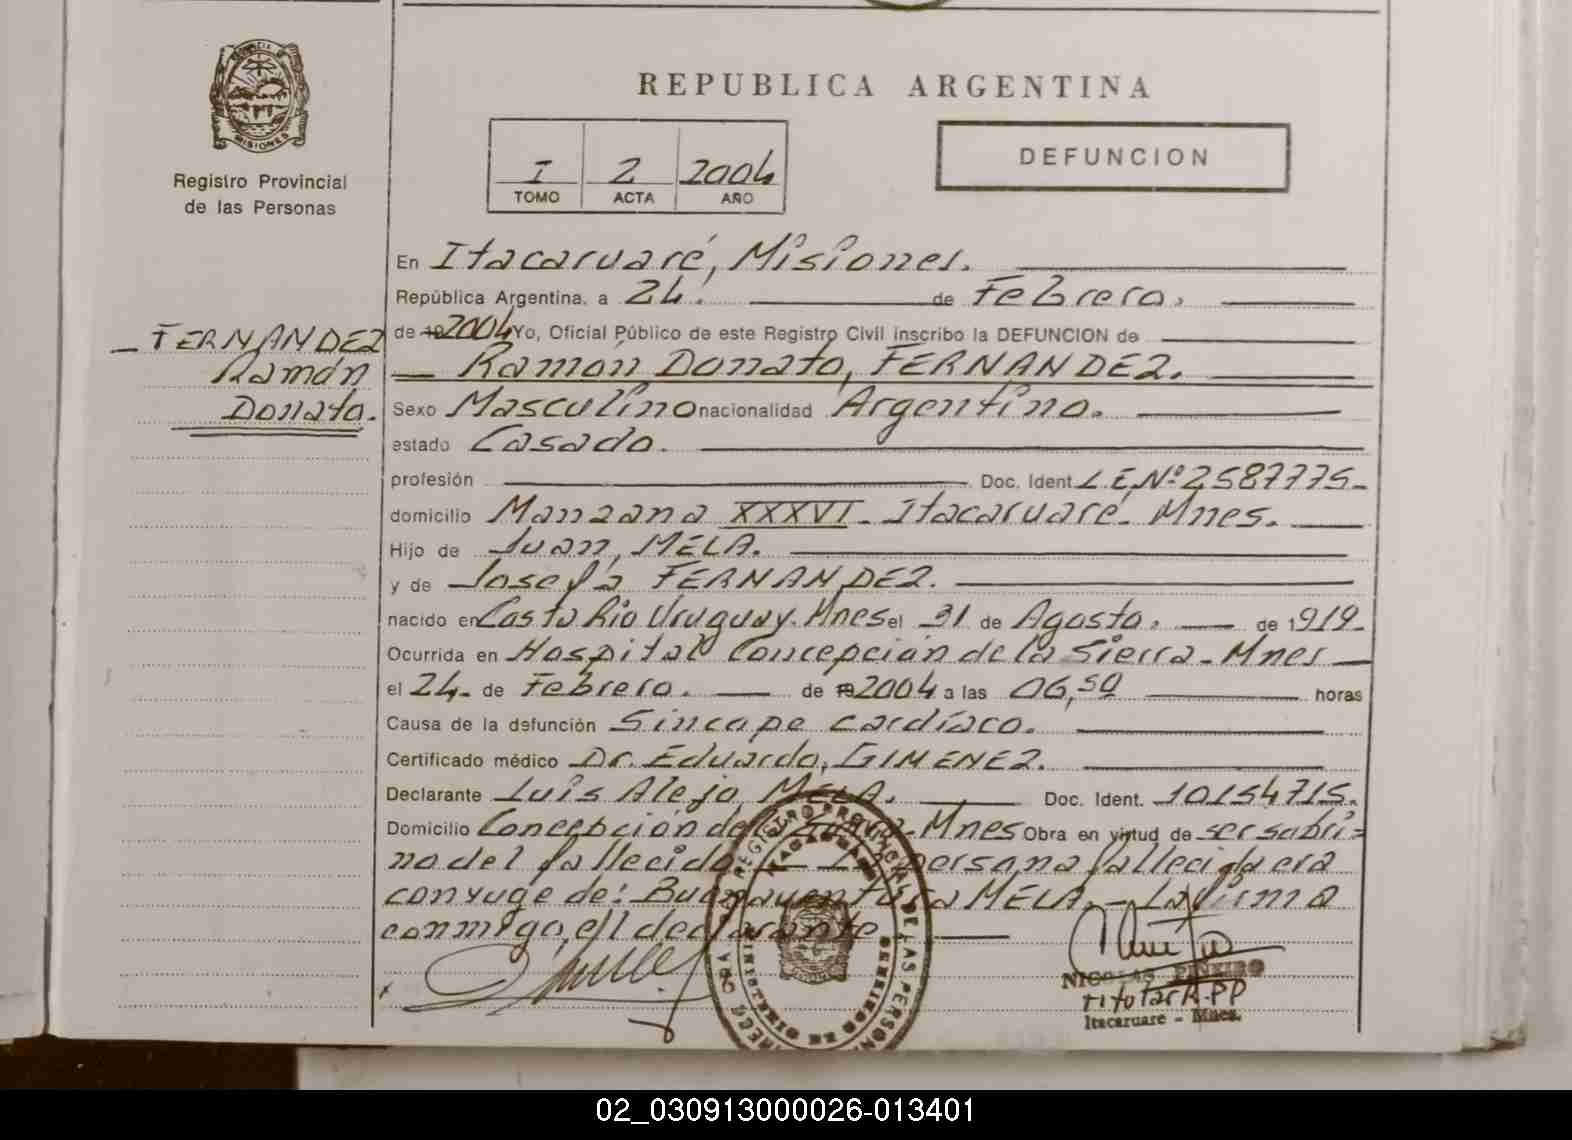 PROVINCIA DE
MISIONES
Registro Provincial
de las Personas
REPUBLICA ARGENTINA
I 2 2004
TOMO ACTA AÑO
DEFUNCION
FERNANDEZ
Ramón
Donato.
En Itacaruaré, Misiones.
República Argentina, a 24. de Febrero.
de 19 2004 Yo, Oficial Público de este Registro Civil inscribo la DEFUNCION de
Ramón Donato, FERNANDEZ.
Sexo Masculino nacionalidad Argentino.
estado Casado.
profesión Doc. Ident L.E.Nº 2587775-
domicilio Manzana XXXVI - Itacaruaré - Mnes.
Hijo de Juan, MELA.
y de Josefa FERNANDEZ.
nacido en Costa Rio Uruguay - Mnes el 31 de Agosto. de 1919-
Ocurrida en Hospital Concepción de la Sierra - Mnes
el 24- de Febrero. de 19 2004 a las 06,50 horas
Causa de la defunción Sincope cardíaco.
Certificado médico Dr. Eduardo, GIMENEZ.
Declarante Luis Alejo, MELA. Doc. Ident. 10154715.
Domicilio Concepción de la Sierra - Mnes Obra en virtud de ser sobri=
no del fallecido. La persona fallecida era
conyuge de: Buenaventura MELA. - La firma
conmigo, el declarante
NICOLAS PINEIRO
titular R.PP
Itacaruare - Mnes.
REGISTRO PROVINCIAL DE LAS PERSONAS
ITACARUARE
02_030913000026-013401